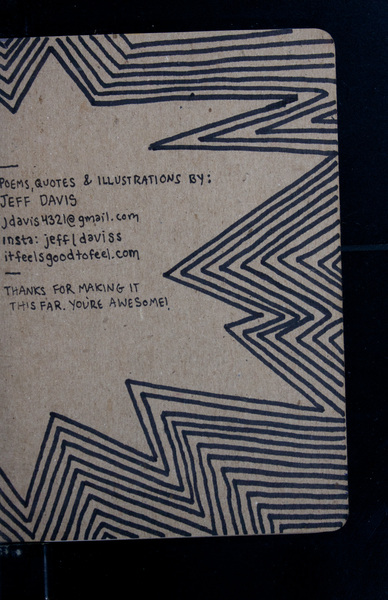 POEMS, QUOTES & ILLUSTRATIONS BY:
JEFF DAVIS
jdavis4321@gmail.com
insta: jeff|daviss
itfeelsgoodtofeel.com
THANKS FOR MAKING IT
THIS FAR. YOU'RE AWESOME!